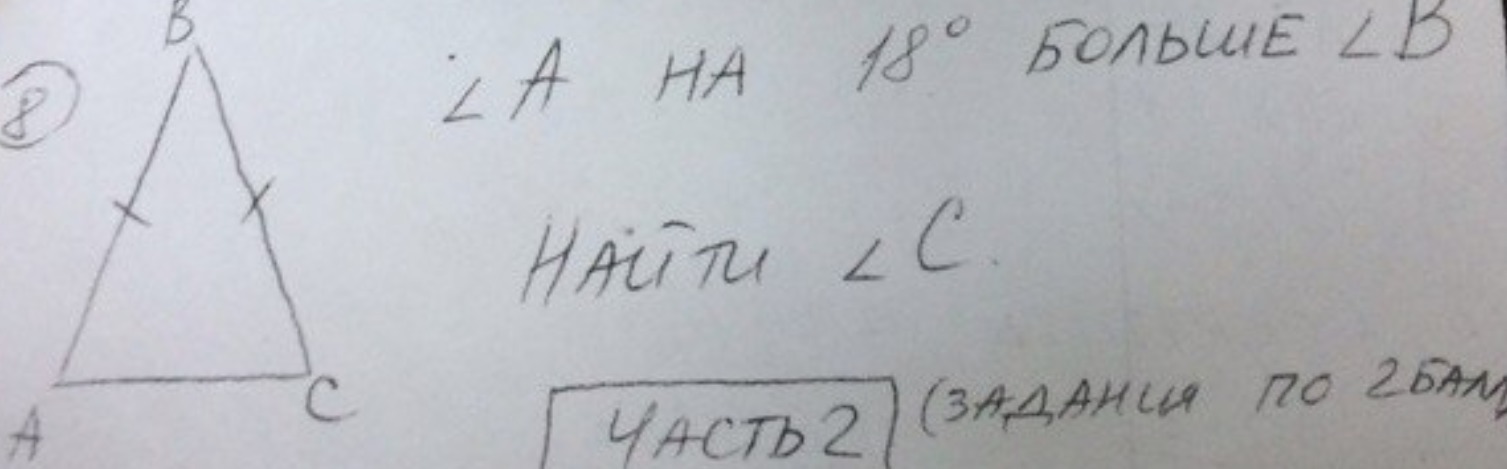 8 ∠A НА 18° БОЛЬШЕ ∠B
НАЙТИ ∠C.
B
A
C
ЧАСТЬ 2 (ЗАДАНИЯ ПО 2 БАЛ